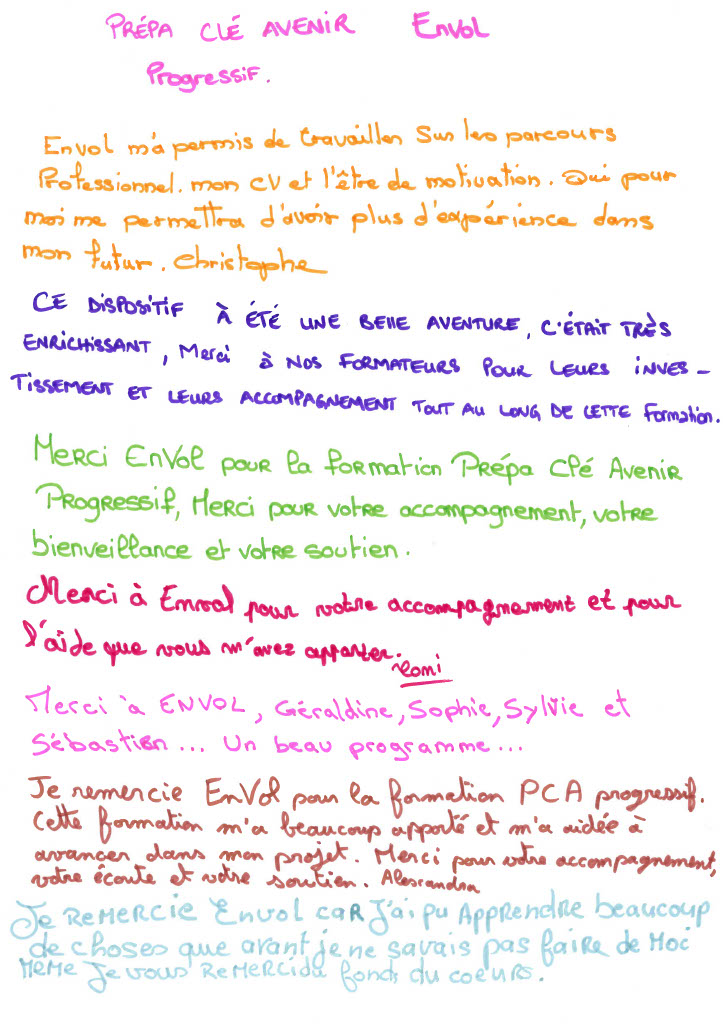 PRÉPA CLÉ AVENIR Envol
Progressif.
Envol m'a permis de travailler sur les parcours
Professionnel. mon CV et l'être de motivation. Qui pour
moi me permettra d'avoir plus d'expérience dans
mon futur. Christophe
CE DISPOSITIF À ÉTÉ UNE BELLE AVENTURE, C'ÉTAIT TRÈS
ENRICHISSANT, Merci à NOS FORMATEURS POUR LEURS INVES-
TISSEMENT ET LEURS ACCOMPAGNEMENT TOUT AU LONG DE CETTE Formation.
Merci EnVol pour la formation Prépa Clé Avenir
Progressif, Merci pour votre accompagnement, votre
bienveillance et votre soutien.
Merci à Envol pour votre accompagnement et pour
l'aide que vous m'avez apporter.
Romi
Merci à ENVOL, Géraldine, Sophie, Sylvie et
Sébastien... Un beau programme...
Je remercie EnVol pour la formation PCA progressif.
Cette formation m'a beaucoup apporté et m'a aidée à
avancer dans mon projet. Merci pour votre accompagnement,
votre écoute et votre soutien. Alexandra
Je Remercie Envol car J'ai pu Apprendre beaucoup
de choses que avant je ne savais pas faire de Moi
Même Je vous Remercidu fonds du coeurs.